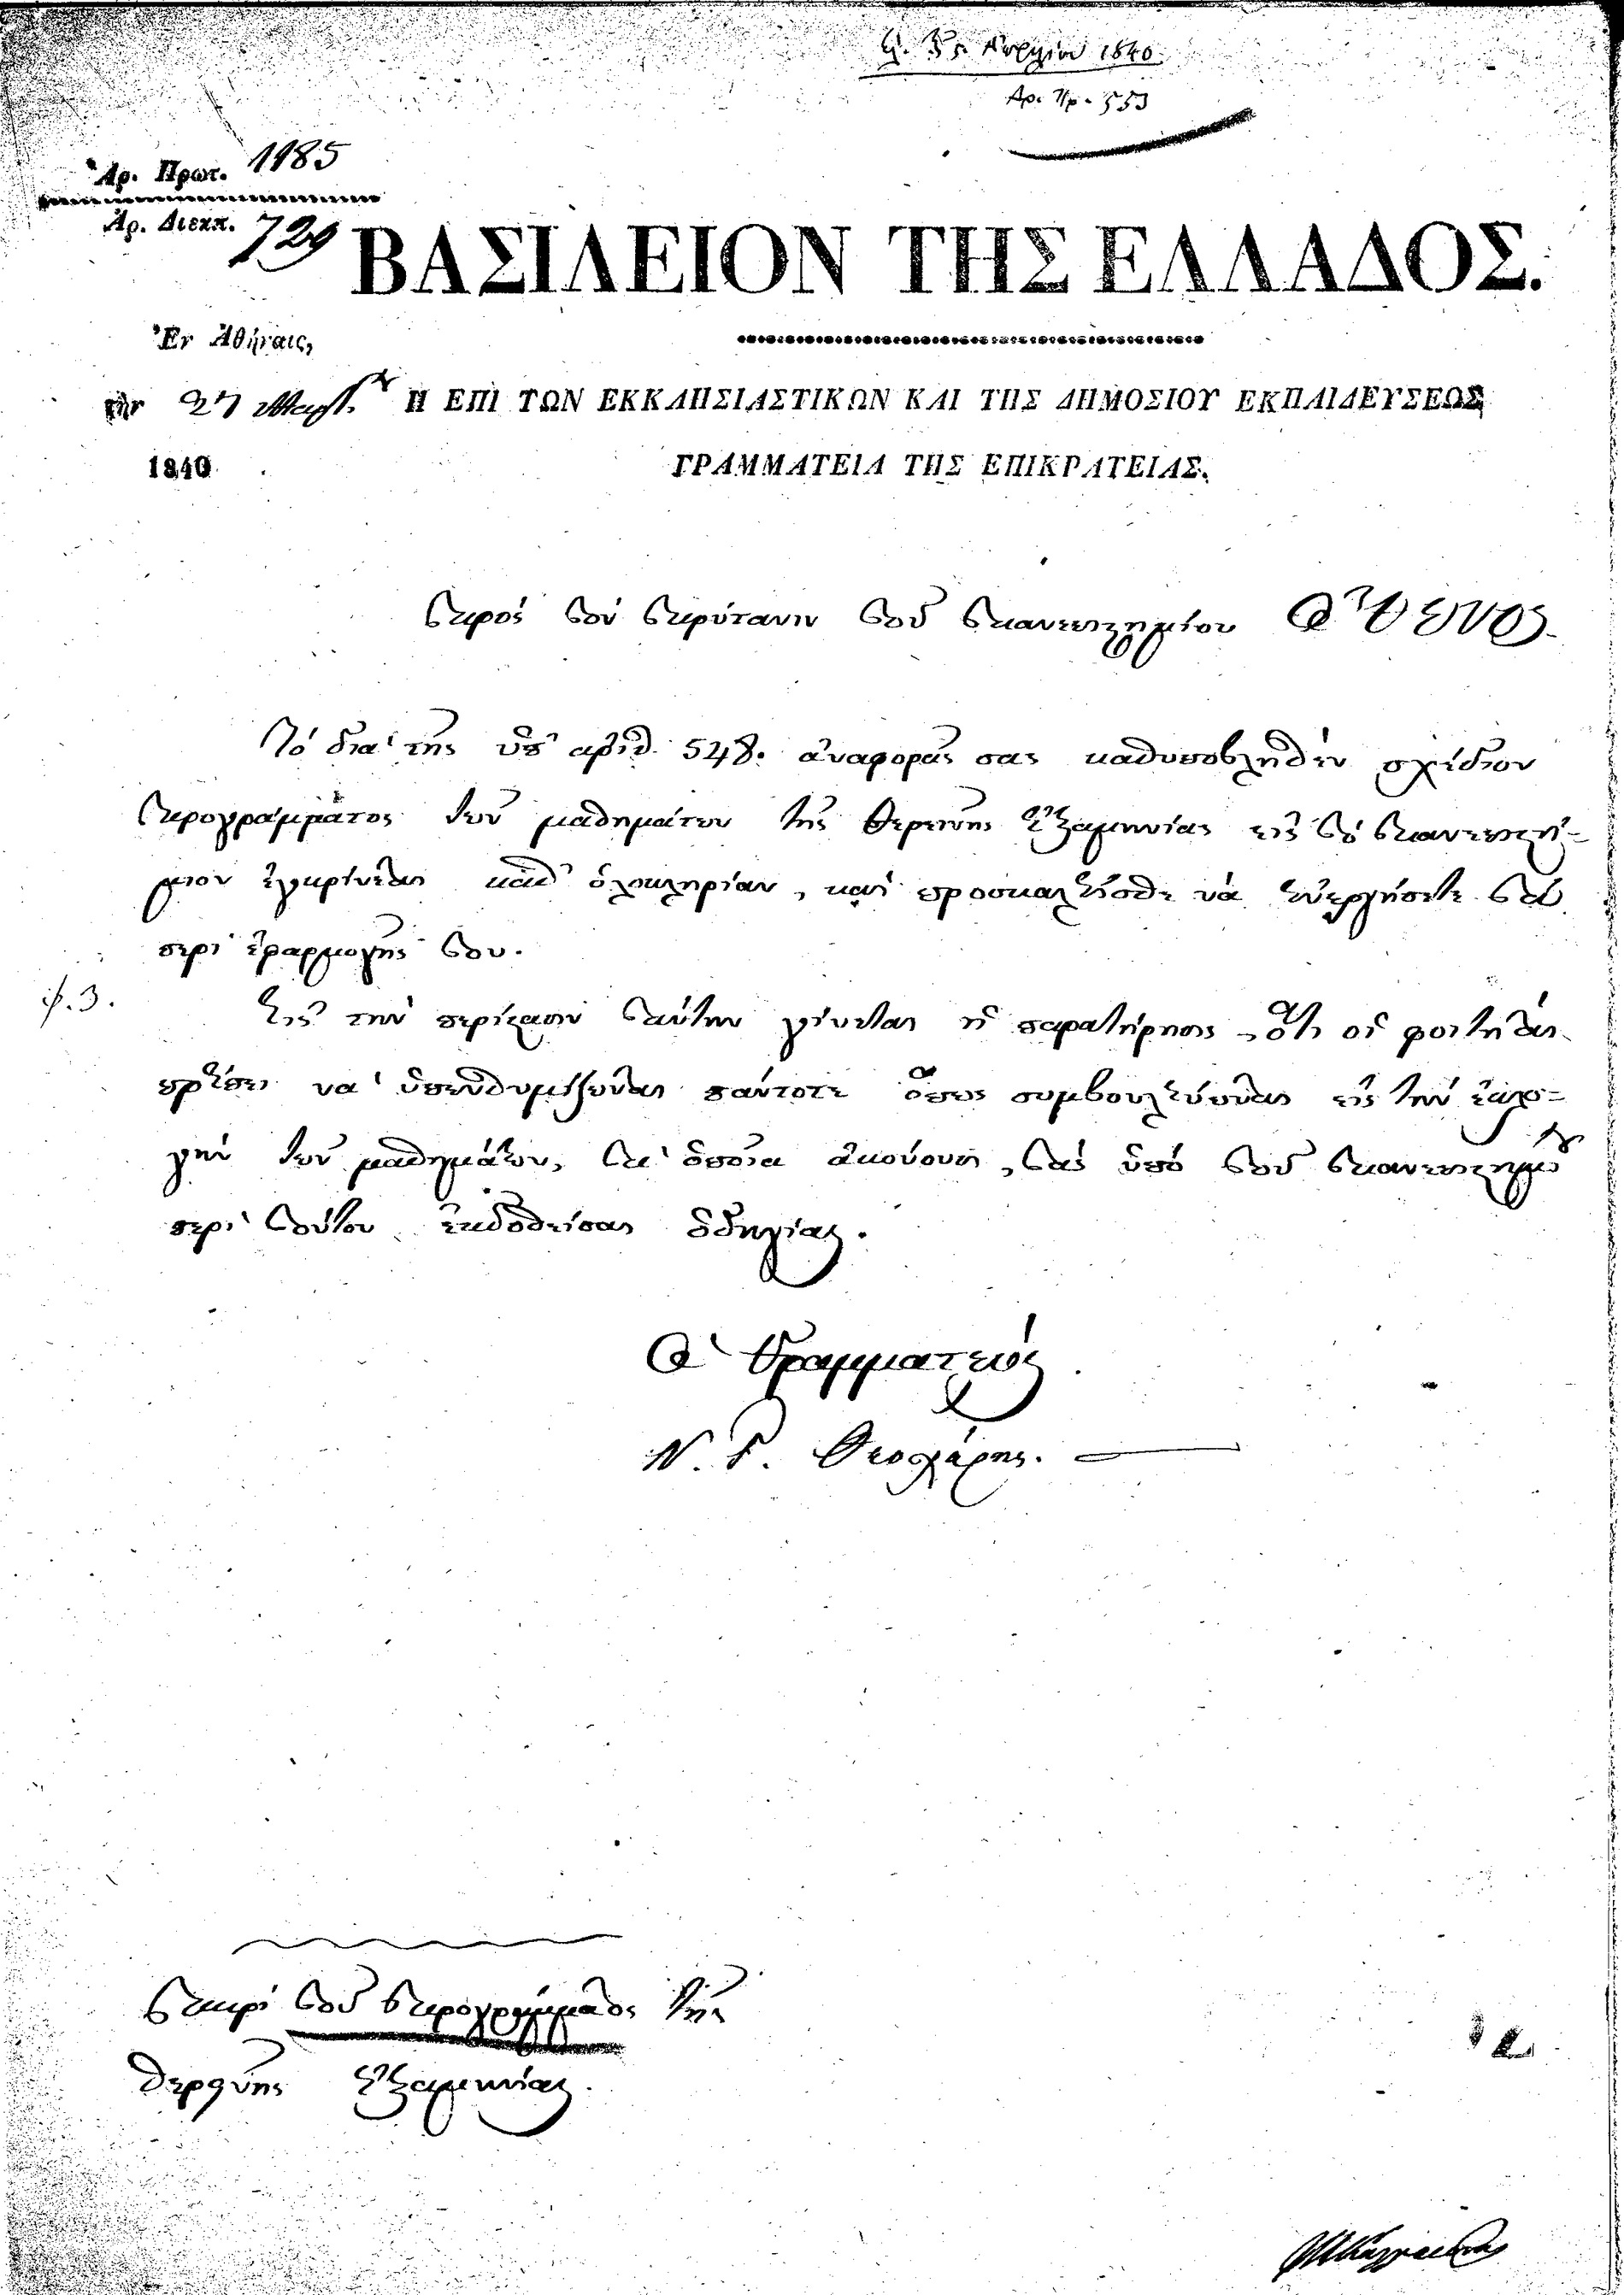 Ἀπριλίου 1840.
Αρ. Πρ. 553
Ἀρ. Πρωτ. 1185
Ἀρ. Διεκπ. 729
ΒΑΣΙΛΕΙΟΝ ΤΗΣ ΕΛΛΑΔΟΣ.
Ἐν Ἀθήναις,
τὴν 27 Μαρτ.
1840
Η ΕΠΙ ΤΩΝ ΕΚΚΛΗΣΙΑΣΤΙΚΩΝ ΚΑΙ ΤΗΣ ΔΗΜΟΣΙΟΥ ΕΚΠΑΙΔΕΥΣΕΩΣ
ΓΡΑΜΜΑΤΕΙΑ ΤΗΣ ΕΠΙΚΡΑΤΕΙΑΣ.
Πρὸς τὸν Πρύτανιν τοῦ Πανεπιστημίου Ὄθωνος.
Τὸ διὰ τῆς ὑπ' ἀριθ. 548. ἀναφορᾶς σας καθυποβληθὲν σχέδιον
Προγράμματος τῶν μαθημάτων τῆς θερινῆς ἑξαμηνίας εἰς τὸ Πανεπιστή-
μιον ἐγκρίνεται καθ' ὁλοκληρίαν, καὶ προσκαλεῖσθε νὰ ἐνεργήσετε τὰ
περὶ ἐφαρμογῆς του.
Εἰς τὴν περίστασιν ταύτην γίνεται ἡ παρατήρησις, ὅτι οἱ φοιτηταὶ
πρέπει νὰ ὑπενθυμίζωνται πάντοτε ὅπως συμβουλεύωνται εἰς τὴν ἐκλο-
γὴν τῶν μαθημάτων, τὰ ὁποῖα ἀκούουν, τὰς ὑπὸ τοῦ Πανεπιστημίου
περὶ τούτου ἐκδοθείσας ὁδηγίας.
Ὁ Γραμματεὺς
Ν. Γ. Θεοχάρης.
Περὶ τοῦ Προγράμματος τῆς
θερινῆς ἑξαμηνίας.